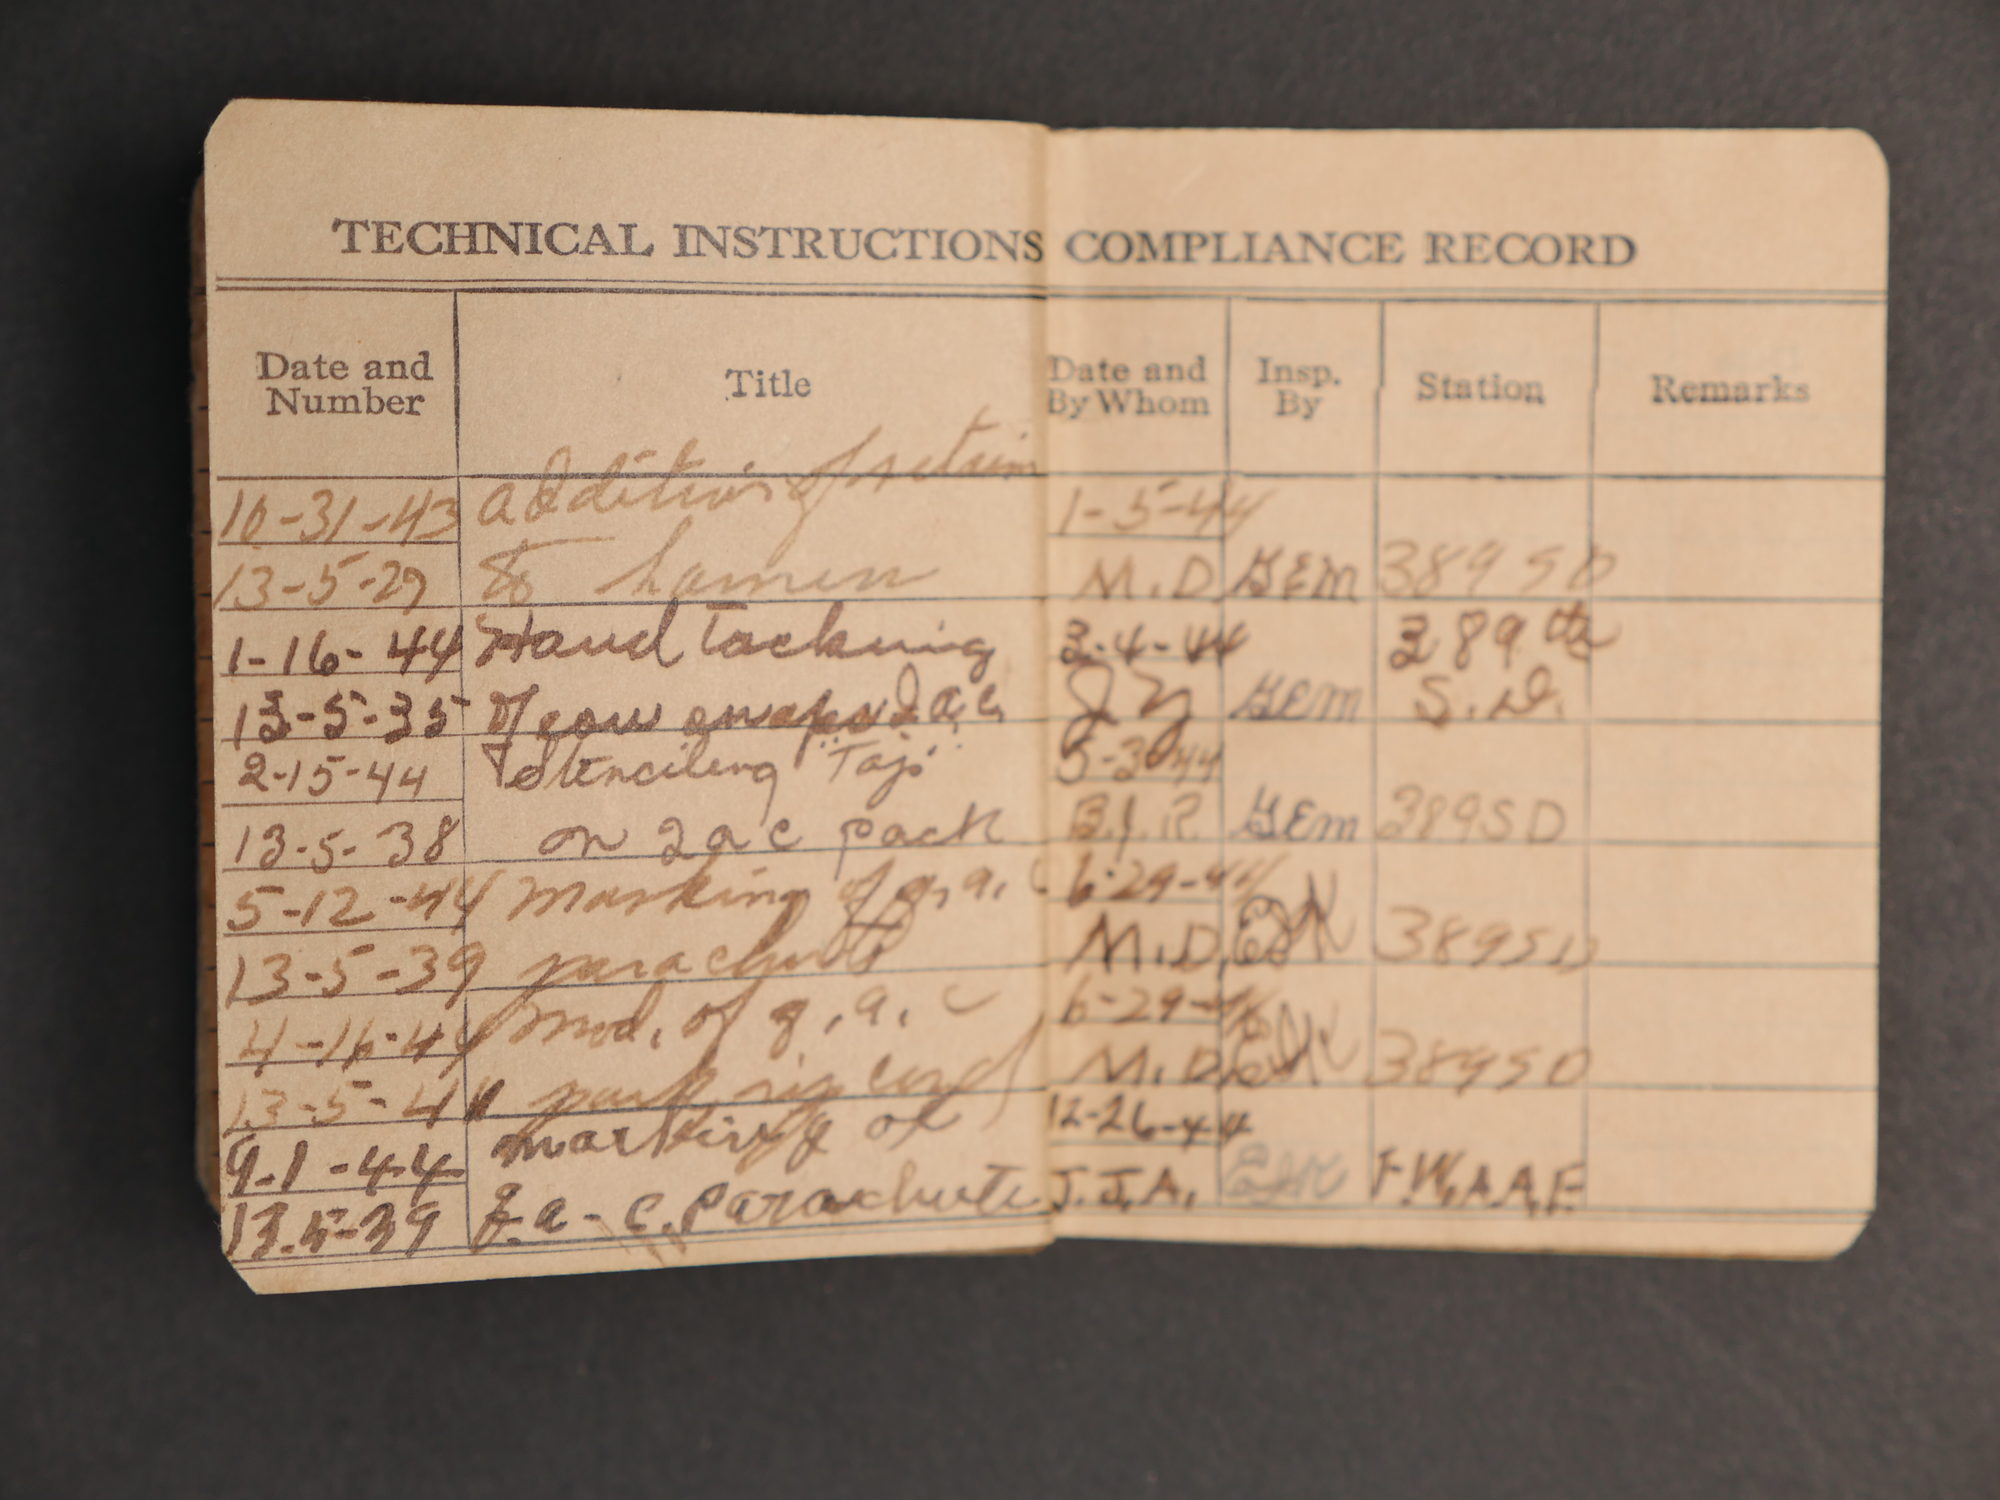 TECHNICAL INSTRUCTIONS COMPLIANCE RECORD
Date and Number Title Date and By Whom Insp. By Station Remarks
10-31-43 addition of retain 1-5-44
13-5-27 to M.D. GEM 389 SD
1-16-44 Hand Tacking 3-4-44 389 th
13-5-35 of GEM S.D.
2-15-44 Stenciling 5-30-44
13-5-38 on 2 a c pack B.J.R. GEM 389SD
5-12-44 marking of q, a, c 6-29-44
13-5-39 parachute M.D. EJK 389SD
4-16-44 Mod. of q, a, c 6-29-44
13-5-41 pack rip cord M.D. EJK 389SD
9-1-44 marking of 12-26-44
13-5-39 q-a-c. Parachute J.J.A. EJK F.W.A.A.F.